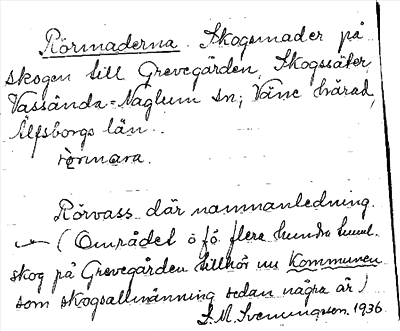 Rörmaderna. Skogsmader på
skogen till Grevegården, Skogssäter
Vassända-Naglum sn; Väne härad,
Älfsborgs län.
rörmara.
Rörvass där namnanledning.
(Området ö få flere hundra tunnl.
skog på Grevegården tillhör nu Kommunen
som skogsallmänning sedan några år)
S. M. Svenningsson. 1936